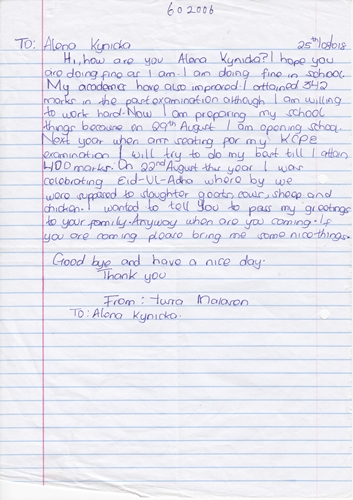 602006
TO: Alena Kynicka 25th/08/018
Hi, how are you Alena Kynicka? I hope you
are doing fine as I am. I am doing fine in school.
My academics have also improved. I attained 342
marks in the past examination although I am willing
to work hard. Now I am preparing my school
things because on 29th August I am opening school.
Next year when am seating for my KCPE
examination I will try to do my best till I attain
400 marks. On 22nd August this year I was
celebrating Eid-Ul-Adha where by we
were supposed to slaughter goats, cows, sheep and
chicken. I wanted to tell you to pass my greetings
to your family. Anyway when are you coming. If
you are coming please bring me some nice things.
Good bye and have a nice day.
Thank you
From: Turra
TO: Alena Kynicka.